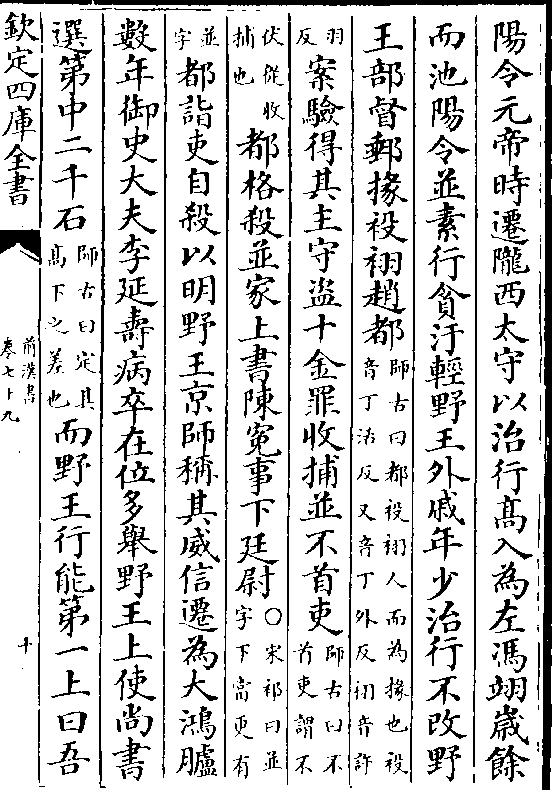 陽令元帝時遷隴西太守以治行高入為左馮翊歲餘
而池陽令並素行貪汙輕野王外戚年少治行不改野
王部督郵掾祋祤趙都師古曰都祋祤人而為掾也祋音丁活反又音丁外反祤音許
羽反案驗得其主守盜十金罪收捕並不首吏師古曰不首吏謂不
伏從收捕也都格殺並家上書陳冤事下廷尉○宋祁曰並字下當更有
並字都詣吏自殺以明野王京師稱其威信遷為大鴻臚
數年御史大夫李延壽病卒在位多舉野王上使尚書
選第中二千石師古曰定其高下之差也而野王行能第一上曰吾
欽定四庫全書
前漢書
卷七十九
十